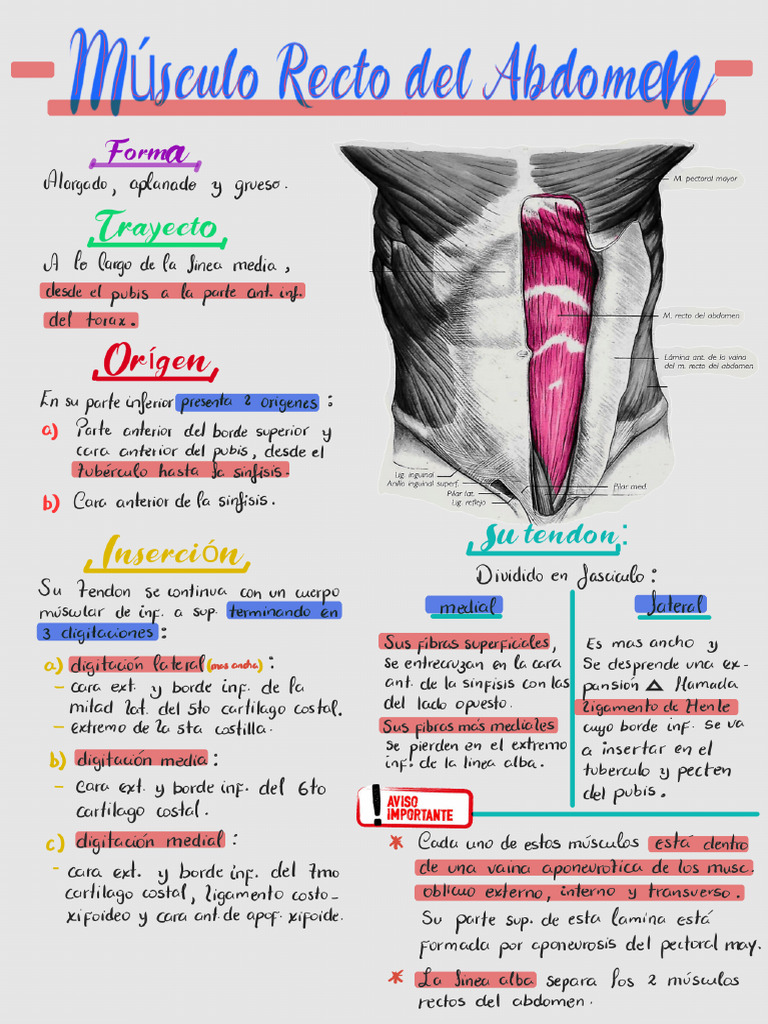 Músculo Recto del Abdomen
Forma
Alargado, aplanado y grueso.
Trayecto
A lo largo de la linea media,
desde el pubis a la parte ant. inf.
del torax.
Orígen
En su parte inferior presenta 2 origenes:
a) Parte anterior del borde superior y
cara anterior del pubis, desde el
tubérculo hasta la sinfisis.
b) Cara anterior de la sinfisis.
Inserción
Su Tendon se continua con un cuerpo
múscular de inf. a sup. terminando en
3 digitaciones:
a) digitación lateral (mas ancha):
- cara ext. y borde inf. de la
mitad lat. del 5to cartilago costal.
- extremo de la 5ta costilla.
b) digitación media:
- Cara ext. y borde inf. del 6to
cartilago costal.
c) digitación medial:
- cara ext. y borde inf. del 7mo
cartilago costal, ligamento costo-
xifoideo y cara ant. de apof. xifoide.
M. pectoral mayor
M. recto del abdomen
Lámina ant. de la vaina
del m. recto del abdomen
Lig. inguinal
Anillo inguinal superf.
Pilar lat.
Lig. reflejo
Pilar med.
Su tendon:
Dividido en fasciculo:
medial
Sus fibras superficiales,
se entrecruzan en la cara
ant. de la sinfisis con las
del lado opuesto.
Sus fibras más mediales
se pierden en el extremo
inf. de la linea alba.
lateral
Es mas ancho y
Se desprende una ex-
pansión △ llamada
ligamento de Henle
cuyo borde inf. se va
a insertar en el
tuberculo y pecten
del pubis.
! AVISO
IMPORTANTE
* Cada uno de estos músculos está dentro
de una vaina aponeurotica de los musc.
oblicuo externo, interno y transverso.
Su parte sup. de esta lamina está
formada por aponeurosis del pectoral may.
* La linea alba separa los 2 músculos
rectos del abdomen.